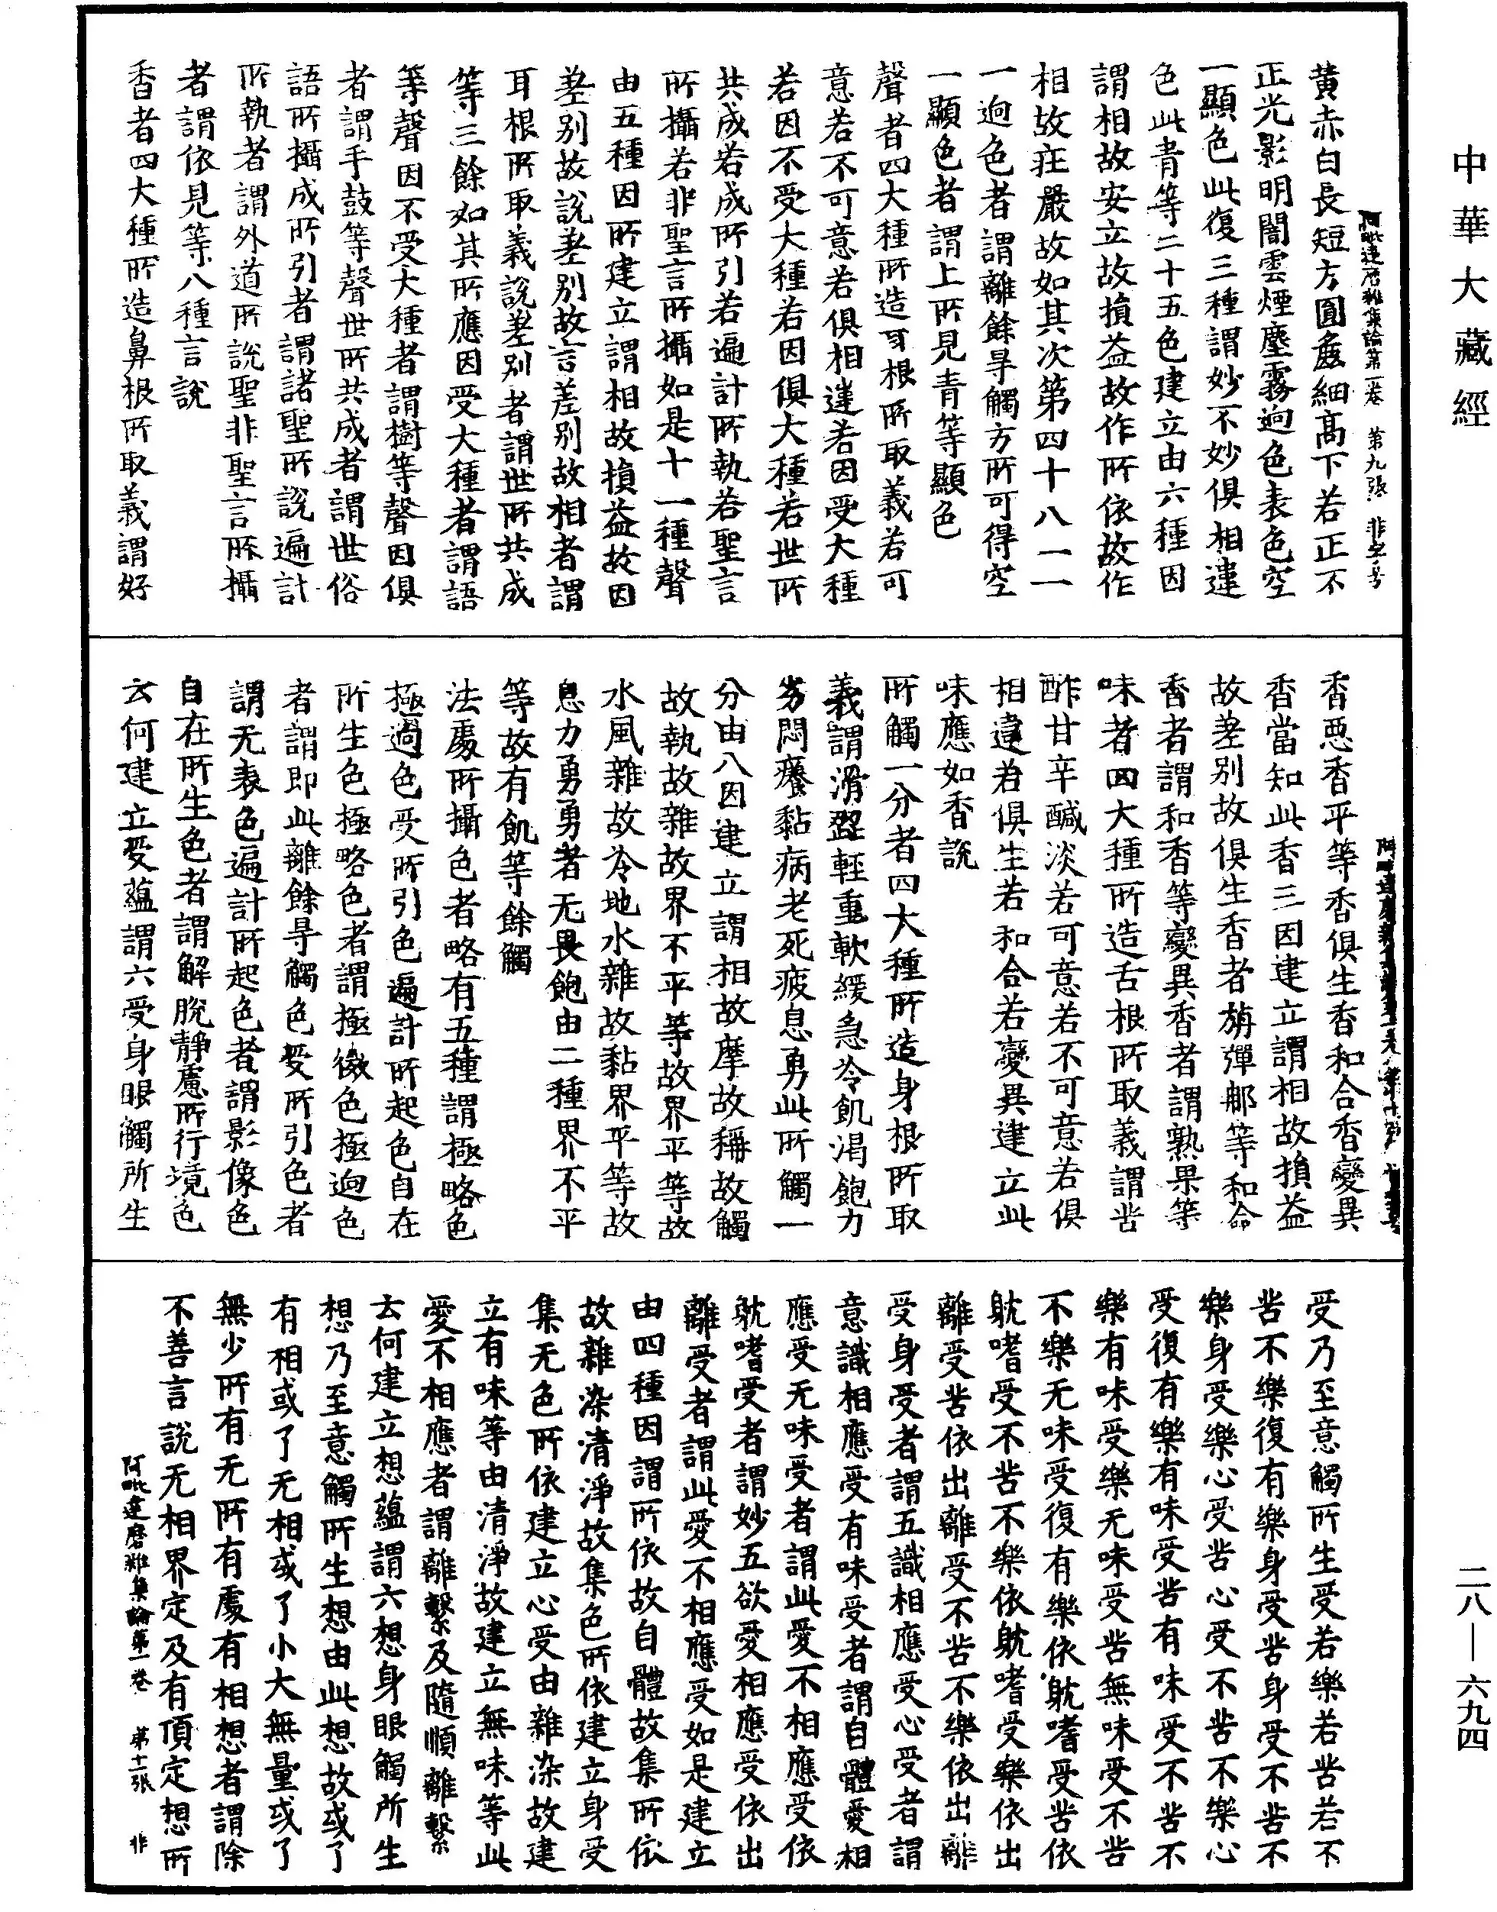 中華大藏經
阿毗達磨雜集論第一卷 第九張 非字号
黃赤白長短方圓麁細高下若正不
正光影明闇雲煙塵霧逈色表色空
一顯色此復三種謂妙不妙俱相違
色此青等二十五色建立由六種因
謂相故安立故損益故作所依故作
相故莊嚴故如其次第四十八一一
一逈色者謂離餘㝵觸方所可得空
一顯色者謂上所見青等顯色
聲者四大種所造耳根所取義若可
意若不可意若俱相違若因受大種
若因不受大種若因俱大種若世所
共成若成所引若遍計所執若聖言
所攝若非聖言所攝如是十一種聲
由五種因所建立謂相故損益故因
差別故說差別故言差別故相者謂
耳根所取義說差別者謂世所共成
等三餘如其所應因受大種者謂語
等聲因不受大種者謂樹等聲因俱
者謂手鼓等聲世所共成者謂世俗
語所攝成所引者謂諸聖所說遍計
所執者謂外道所說聖非聖言所攝
者謂依見等八種言說
香者四大種所造鼻根所取義謂好
香惡香平等香俱生香和合香變異
香當知此香三因建立謂相故損益
故差別故俱生香者旃彈那等和合
香者謂和香等變異香者謂熟果等
味者四大種所造舌根所取義謂苦
酢甘辛鹹淡若可意若不可意若俱
相違若俱生若和合若變異建立此
味應如香說
所觸一分者四大種所造身根所取
義謂滑澀輕重軟緩急冷飢渴飽力
劣悶癢黏病老死疲息勇此所觸一
分由八因建立謂相故摩故稱故觸
故執故雜故界不平等故界平等故
水風雜故冷地水雜故黏界平等故
息力勇勇者无畏飽由二種界不平
等故有飢等餘觸
法處所攝色者略有五種謂極略色
極逈色受所引色遍計所起色自在
所生色極略色者謂極微色極逈色
者謂即此離餘㝵觸色受所引色者
謂无表色遍計所起色者謂影像色
自在所生色者謂解脫靜慮所行境色
云何建立受蘊謂六受身眼觸所生
受乃至意觸所生受若樂若苦若不
苦不樂復有樂身受苦身受不苦不
樂身受樂心受苦心受不苦不樂心
受復有樂有味受苦有味受不苦不
樂有味受樂无味受苦無味受不苦
不樂无味受復有樂依躭嗜受苦依
躭嗜受不苦不樂依躭嗜受樂依出
離受苦依出離受不苦不樂依出離
受身受者謂五識相應受心受者謂
意識相應受有味受者謂自體愛相
應受无味受者謂此愛不相應受依
躭嗜受者謂妙五欲愛相應受依出
離受者謂此愛不相應受如是建立
由四種因謂所依故自體故集所依
故雜染清淨故集色所依建立身受
集无色所依建立心受由雜染故建
立有味等由清淨故建立無味等此
愛不相應者謂離繫及隨順離繫
云何建立想蘊謂六想身眼觸所生
想乃至意觸所生想由此想故或了
有相或了无相或了小大無量或了
無少所有无所有處有相想者謂除
不善言說无相界定及有頂定想所
阿毗達磨雜集論第一卷 第十一張 非
二八—六九四